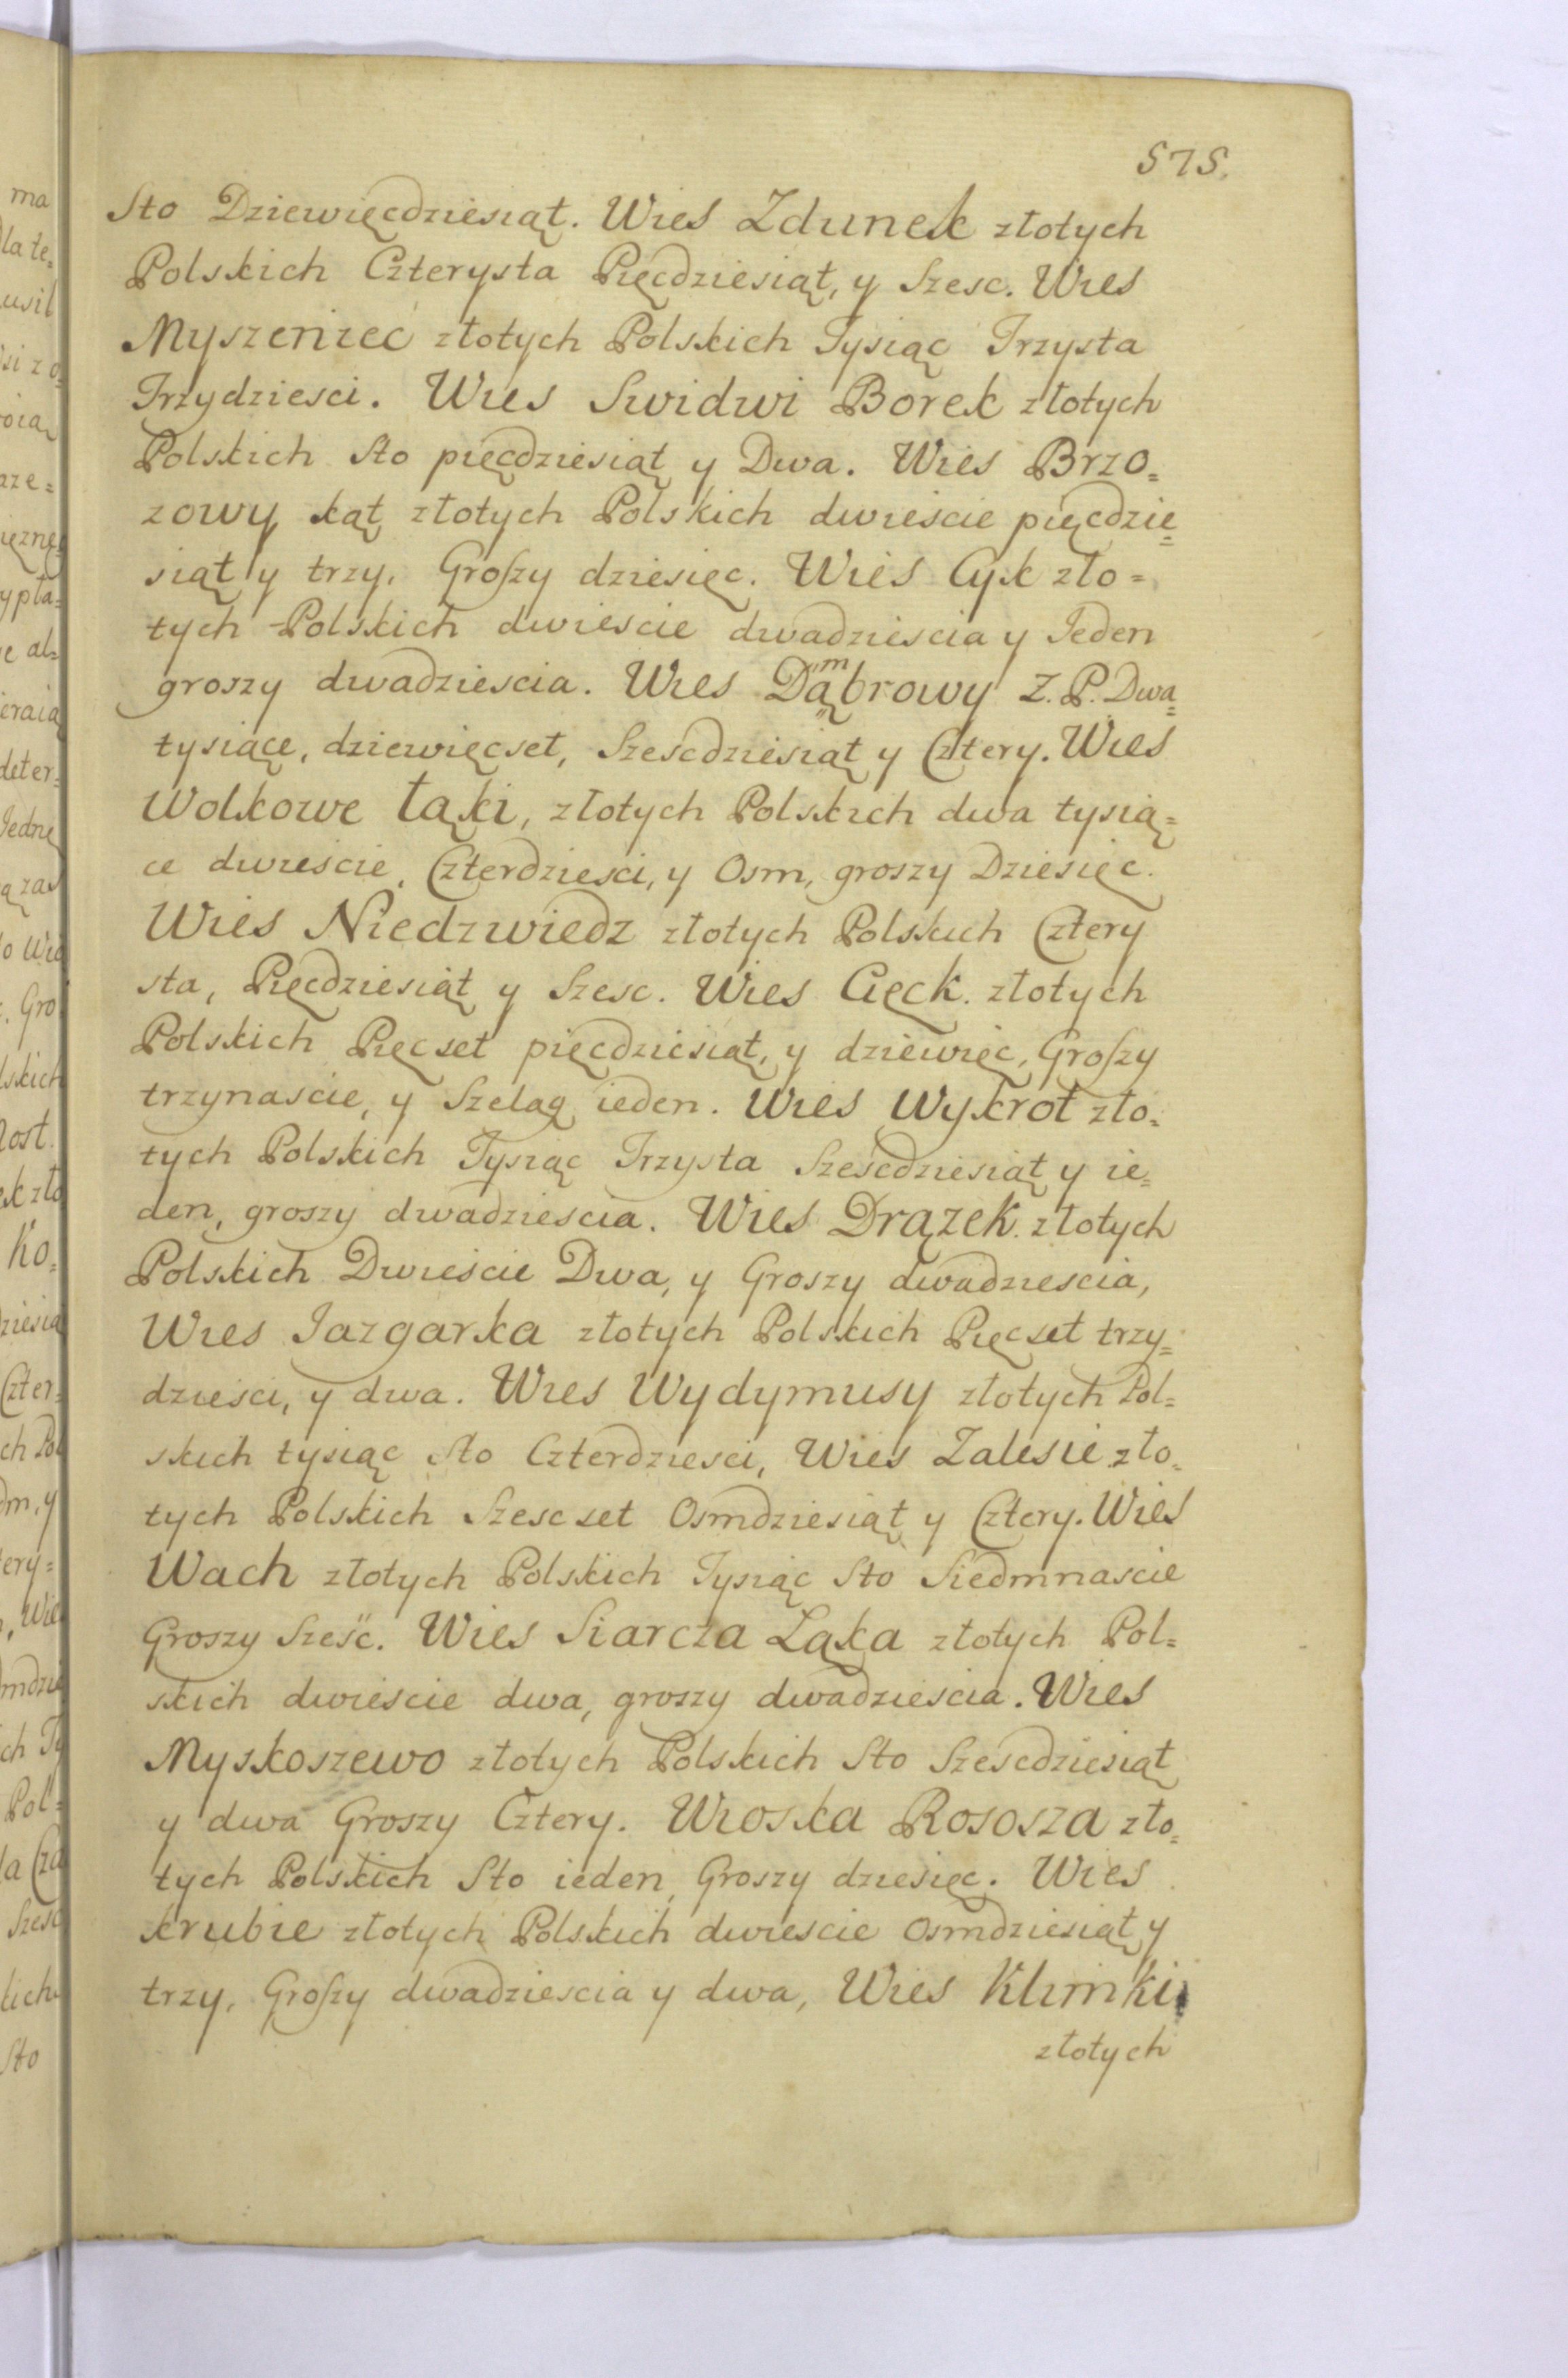 575.
Sto Dziewięcdziesiąt. Wies Zdunek złotych
Polskich Czterysta Pięcdziesiąt, y Szesc. Wies
Myszeniec złotych Polskich Tysiąc Trzysta
Trzydziesci. Wies Swidwi Borek złotych
Polskich Sto pięcdziesiąt y Dwa. Wies Brzo=
zowy kąt złotych Polskich dwieście pięcdzie=
siąt y trzy, Groszy dziesięc. Wies Cyk zło=
tych Polskich dwieście dwadziescia y Jeden
groszy dwadziescia. Wies Dąmbrowy Z. P. Dwa=
tysiące, dziewięcset, Szescdziesiąt y Cztery. Wies
Wolkowe Łąki, złotych Polskich dwa tysią=
ce dwieście, Czterdziesci, y Osm, groszy Dziesięc.
Wies Niedzwiedz złotych Polskich Cztery
sta, Pięcdziesiąt y Szesc. Wies Cięck. złotych
Polskich Pięcset pięcdziesiąt, y dziewięc, Groszy
trzynaście, y Szeląg ieden. Wies Wykrot zło=
tych Polskich Tysiąc Trzysta Sześcdziesiąt y ie=
den, groszy dwadzieścia. Wies Drązek. złotych
Polskich Dwieście Dwa, y Groszy dwadziescia,
Wies Jazgarka złotych Polskich Pięcset trzy=
dzieści, y dwa. Wies Wydymusy złotych Pol=
skich tysiąc Sto Czterdziesci, Wies Zalesie zło=
tych Polskich Szescset Osmdziesiąt y Cztery. Wies
Wach złotych Polskich Tysiąc Sto Siedmnascie
Groszy Sześc. Wies Siarcza Ląka złotych Pol=
skich dwieście dwa, groszy dwadzieścia. Wies
Myskoszewo złotych Polskich Sto Szescdziesiąt
y dwa Groszy Cztery. Wioska Rososza zło=
tych Polskich Sto ieden, Groszy dziesięc. Wies
krubie złotych Polskich dwiescie Osmdziesiąt y
trzy, Groszy dwadziescia y dwa, Wies Klimki
złotych